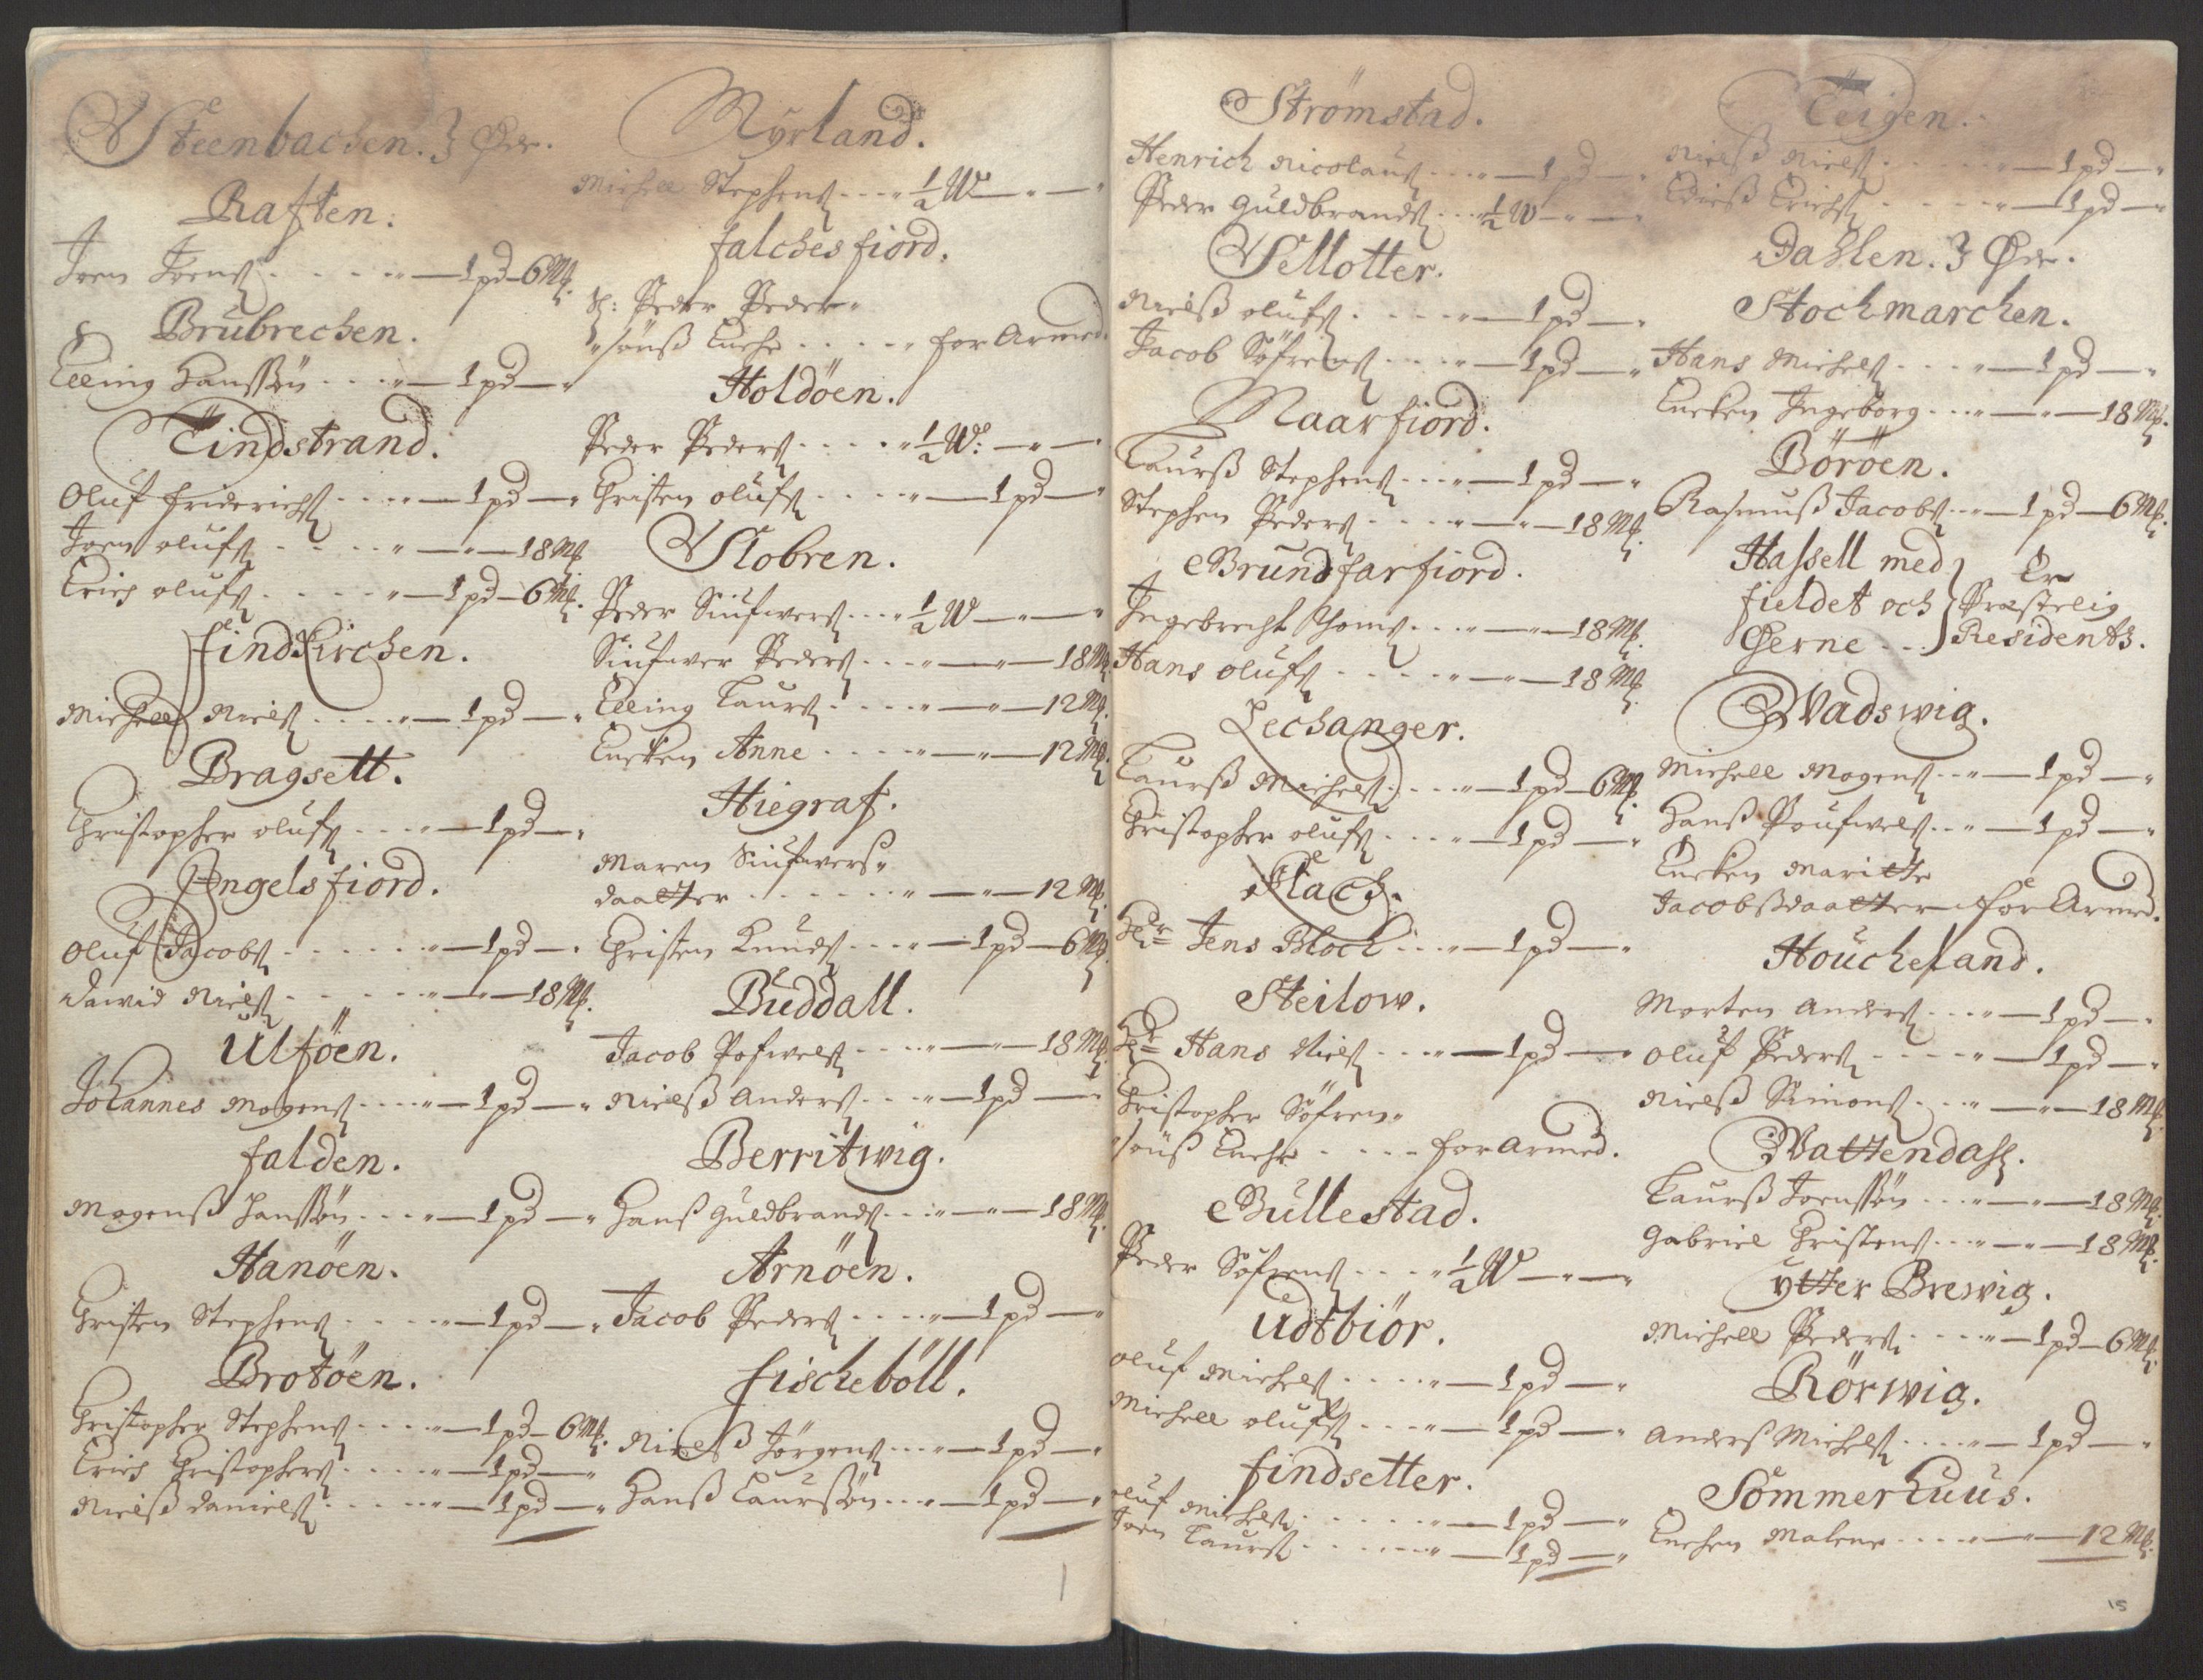 Steenbachen. 3 Øde.
Raften.
Joen Joens 1 pd 6 Mk.
Brubrechen.
Elling Hanssøn 1 pd
Tindstrand.
Oluf Friderichs 1 pd
Joen Olufs 18 Mk.
Erich Olufs 1 pd 6 Mk.
findKirchen.
Michell Niels 1 pd
Bragsett.
Christopher Olufs 1 pd
Ingelsfiord.
Oluf Jacobs 1 pd
David Niels 18 Mk.
Ulföen.
Johannes Mogens 1 pd
falden.
Mogenß Hanssøn 1 pd
Hanöen.
Christen Stephens 1 pd
Brotöen.
Christopher Stephens 1 pd 6 Mk.
Erich Christophers 1 pd
Nielß Daniels 1 pd
Myrland.
Michell Stephens ½ W
falchesfiord.
Sl: Peder Peder
sönß Enche for Armed.
Holdöen.
Peder Peders ½ W:
Christen Olufs 1 pd
Slobren.
Peder Siufwers ½ W
Siufwer Peders 18 Mk.
Elling Laurs 12 Mk.
Encken Anne 12 Mk.
Hiegraf.
Maren Siufwers
daatter 12 Mk.
Christen Knuds 1 pd 6 Mk.
Buddall.
Jacob Pofwels 18 Mk.
Nielß Anders 1 pd
Berritwig.
Hanß Guldbrands 18 Mk.
Arnöen.
Jacob Peders 1 pd
fischeböll.
Nielß Jörgens 1 pd
Hanß Laurssøn 1 pd
Strömstad.
Henrich Nicolaus 1 pd
Peder Guldbrands ½ W
Sellotter.
Nielß Olufs 1 pd
Jacob Söfrens 1 pd
Maarfiord.
Laurß Stephens 1 pd
Stephen Peders 18 Mk.
Brundfarfiord.
Ingebrecht Thoms 18 Mk.
Hans Olufs 18 Mk.
Lechanger.
Laurß Michels 1 pd 6 Mk.
Christopher Olufs 1 pd
Slach.
Hr Jens Bloch 1 pd
Steilow.
Hr Hans Niels 1 pd
Christopher Söfren
sönß Enche for Armed.
Bullestad.
Peder Söfrens ½ W
Udtbiör.
Oluf Michels 1 pd
Michell Olufs 1 pd
findsetter.
Oluf Michels 1 pd
Joen Laurs 1 pd
Teigen.
Nielß Niels 1 pd
Erichs 1 pd
Dahlen. 3 Øde.
Stochmarchen.
Hans Michels 1 pd
Encken Ingeborg 18 Mk.
Böröen.
Rasmuß Jacobs 1 pd 6 Mk.
Hassell med } Er
fieldet och } Præstelig
Øerne } Residents.
Wadswig.
Michell Mogens 1 pd
Hanß Poufwels 1 pd
Encken Maritte
Jacobßdaatter for Armed.
Houcheland.
Morten Anders 1 pd
Oluf Peders 1 pd
Nielß Simons 18 Mk.
Wattendahl.
Laurß Joenssøn 18 Mk.
Gabriel Christens 18 Mk.
ytter Brewig.
Michell Peders 1 pd 6 Mk.
Rörwig.
Anders Michels 1 pd
Sommerhuus.
Enchen Malene 12 Mk.
15